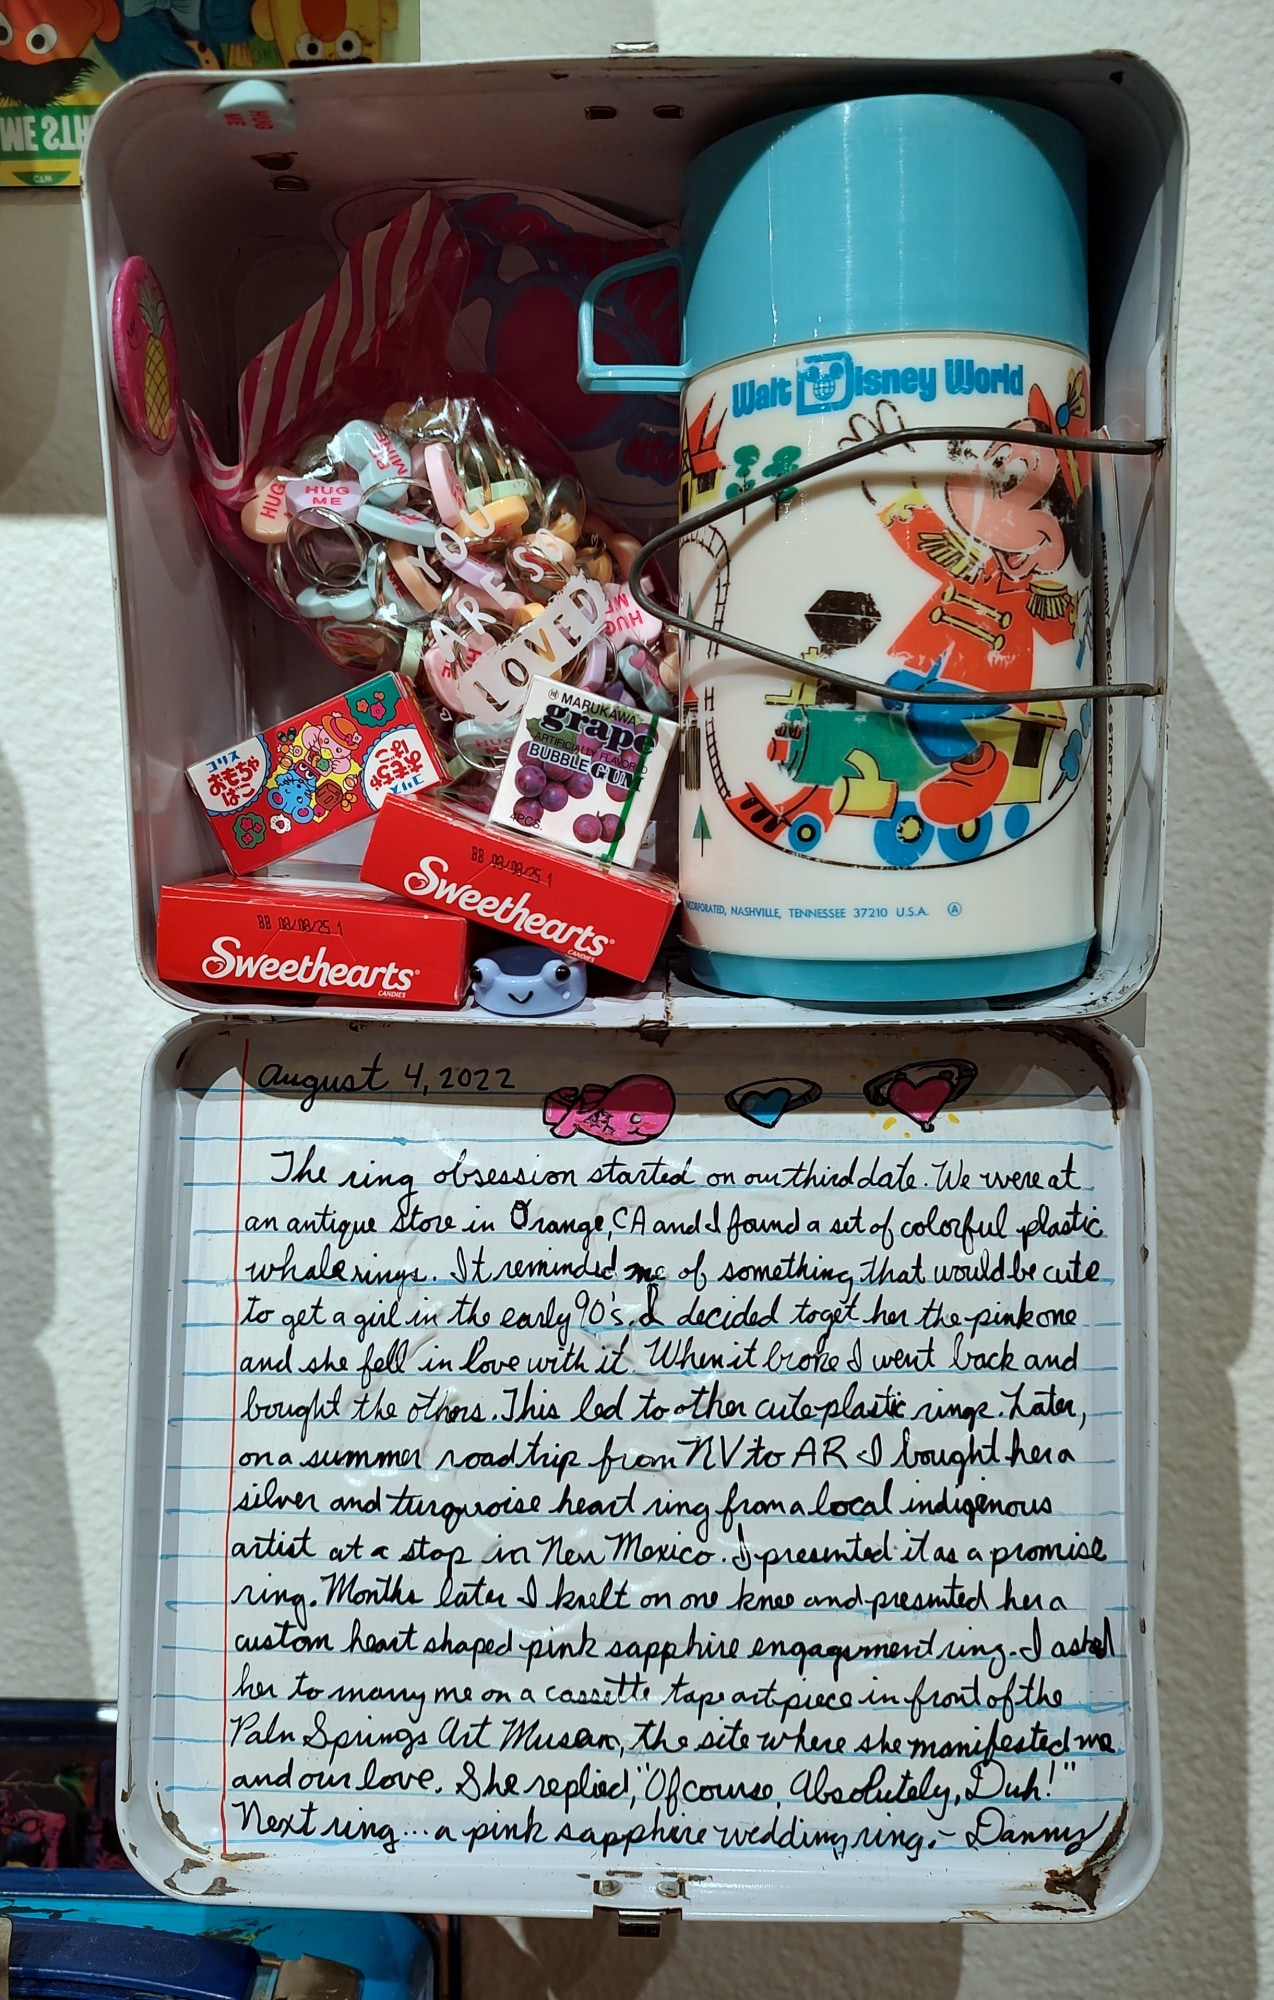 HUG
ME
Walt Disney World
PINE
MINE
HUG
HUG
ME
YOU
ARE SO
LOVED
HUG
ME
MARUKAWA
grape
ARTIFICIALLY FLAVORED
BUBBLE GUM
4PCS.
コリス
おもちゃ
ばこ
おもちゃ
ばこ
コリス
BB 08/08/25 1
Sweethearts
CANDIES
BB 08/08/25 1
Sweethearts
CANDIES
INCORPORATED, NASHVILLE, TENNESSEE 37210 U.S.A.
SPECIALS START AT
August 4, 2022
The ring obsession started on our third date. We were at
an antique store in Orange, CA and I found a set of colorful plastic
whale rings. It reminded me of something that would be cute
to get a girl in the early 90's. I decided to get her the pink one
and she fell in love with it. When it broke I went back and
bought the others. This led to other cute plastic rings. Later,
on a summer road trip from NV to AR I bought her a
silver and turquoise heart ring from a local indigenous
artist at a stop in New Mexico. I presented it as a promise
ring. Months later I knelt on one knee and presented her a
custom heart shaped pink sapphire engagement ring. I asked
her to marry me on a cassette tape art piece in front of the
Palm Springs Art Museum, the site where she manifested me
and our love. She replied, "Of course, Absolutely, Duh!"
Next ring... a pink sapphire wedding ring. - Danny